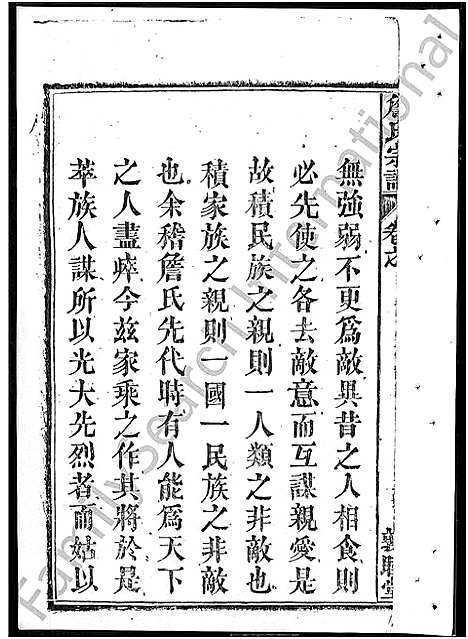 詹氏宗譜
卷之
無強弱不更為敵異昔之人相食則
必先使之各去敵意而互謀親愛是
故積民族之親則一人類之非敵也
積家族之親則一國一民族之非敵
也余稽詹氏先代時有人能為天下
之人盡瘁今玆家乘之作其將於是
萃族人謀所以光大先烈者而姑以
FamilySearch International